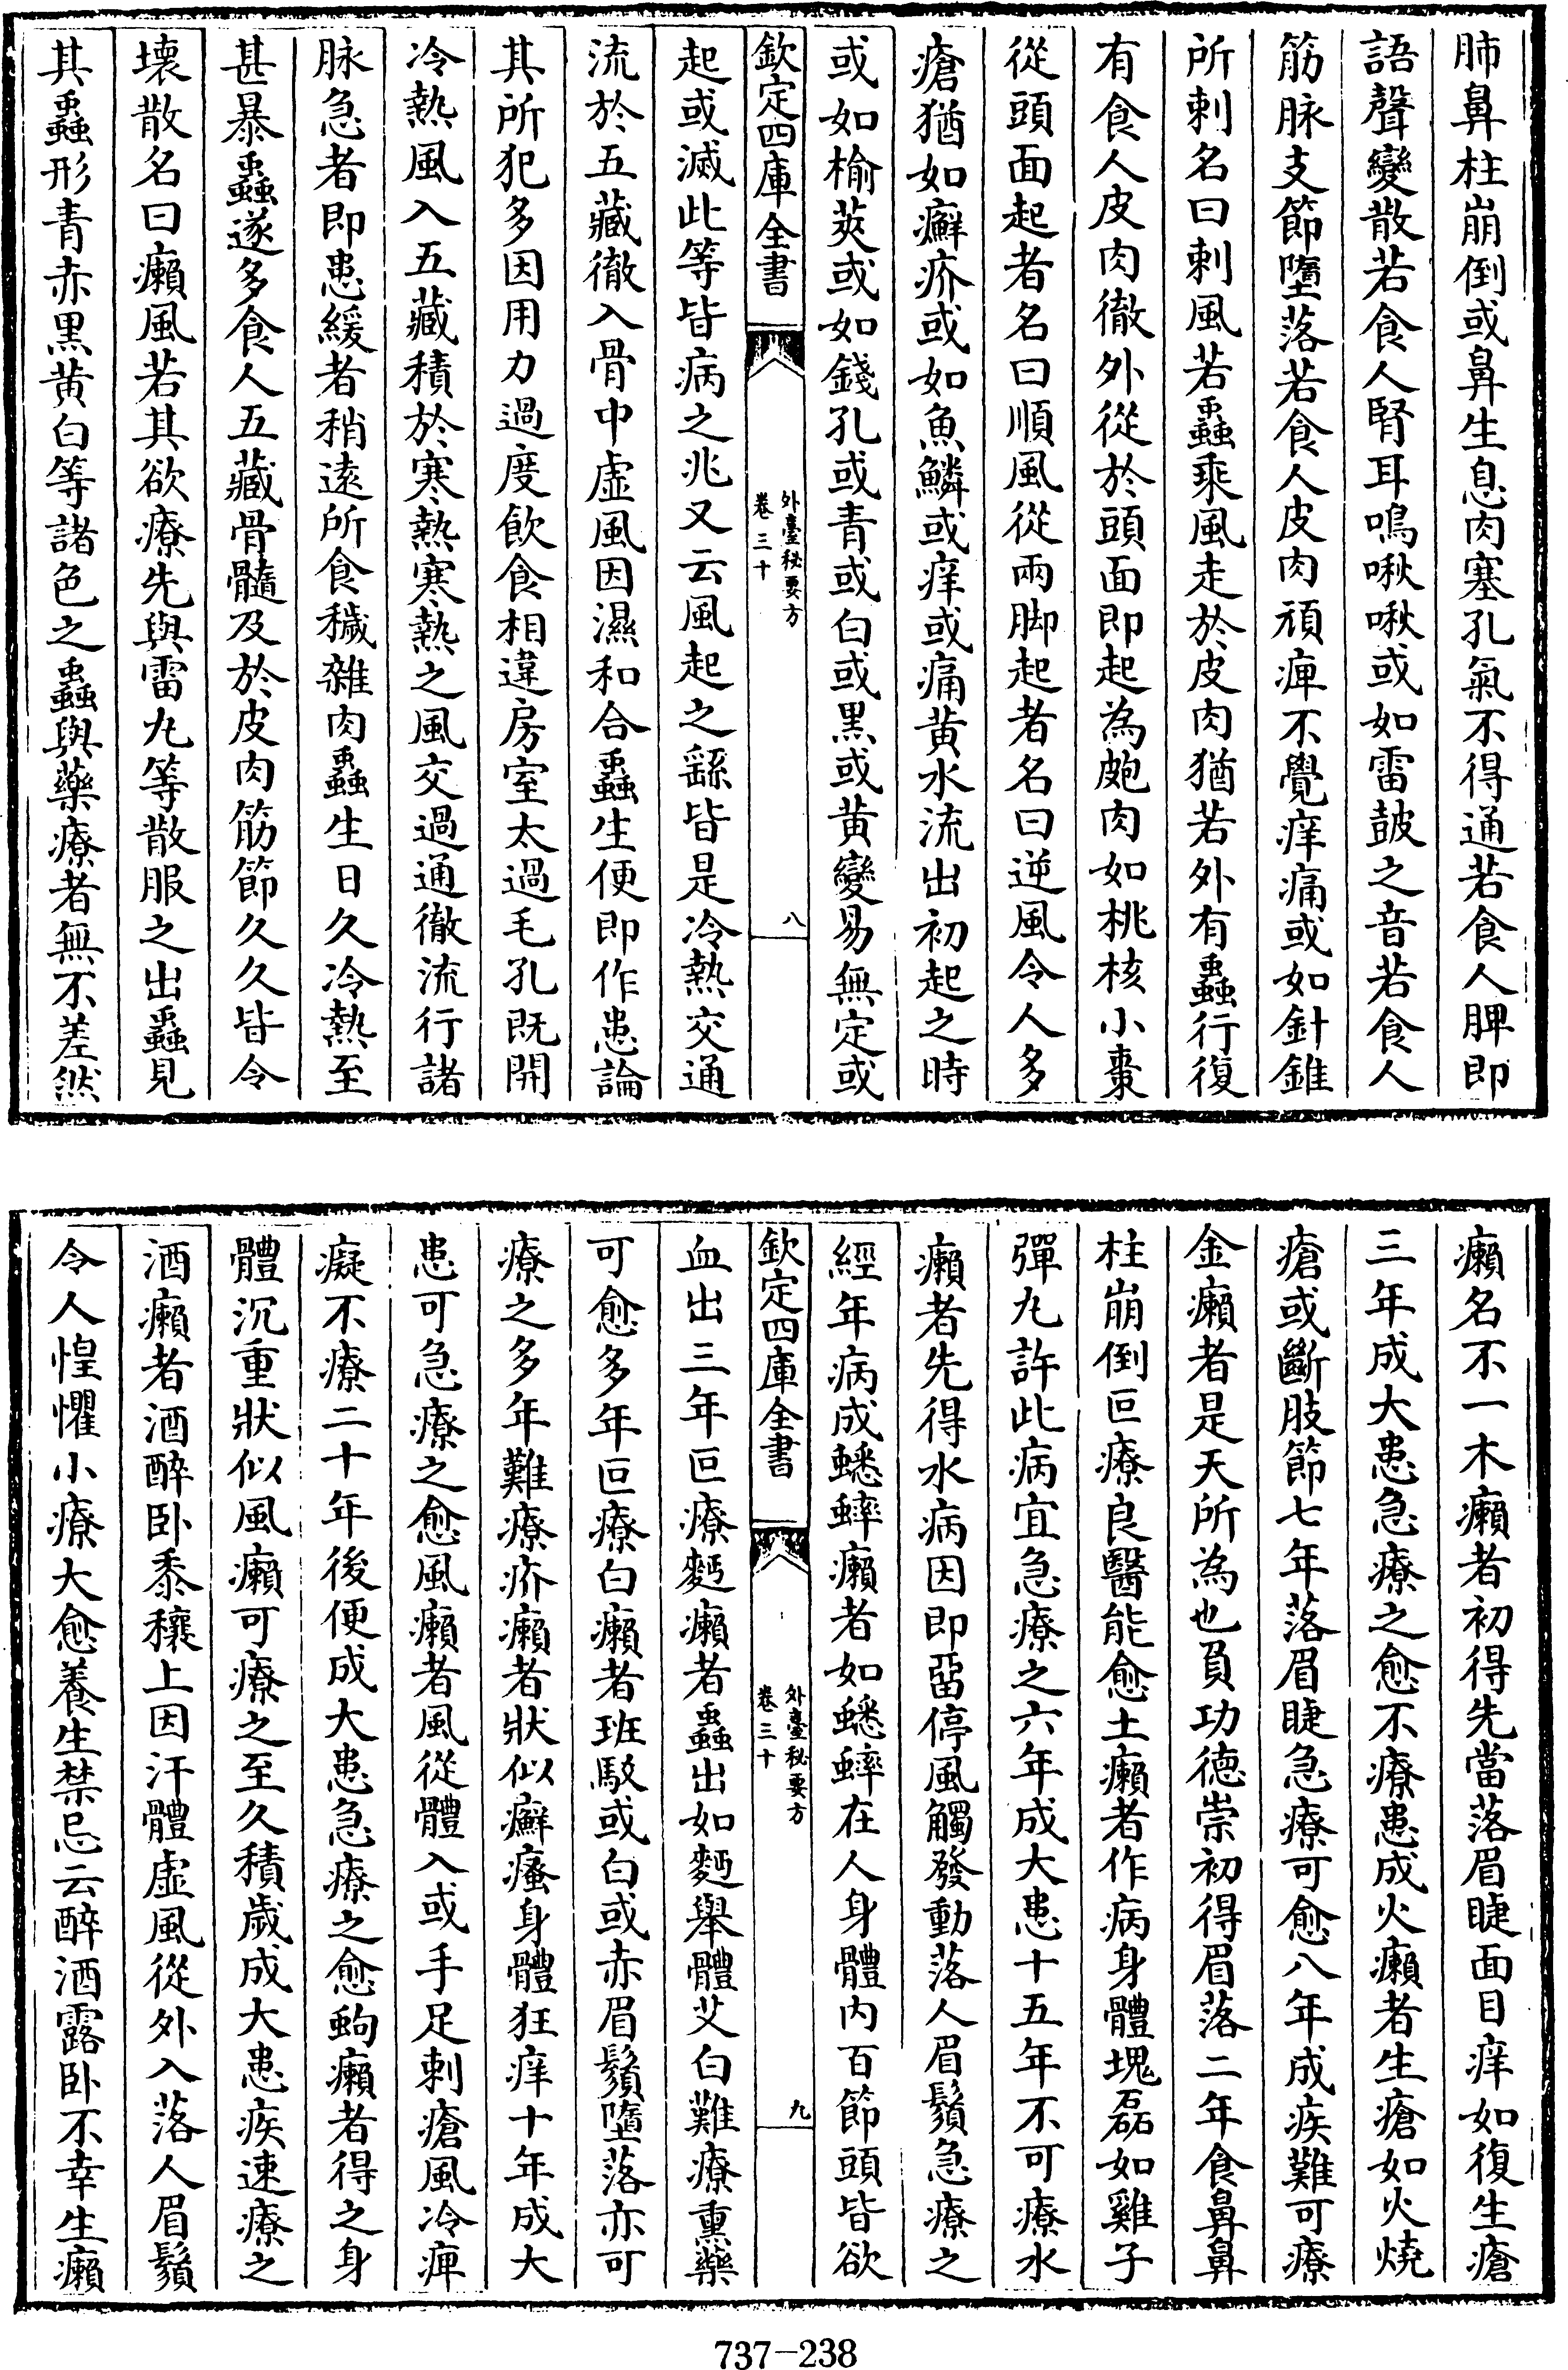 肺鼻柱崩倒或鼻生息肉塞孔氣不得通若食人脾即
語聲變散若食人腎耳鳴啾啾或如雷鼓之音若食人
筋脉支節墮落若食人皮肉頑痺不覺痒痛或如針錐
所刺名曰刺風若蟲乘風走於皮肉猶若外有蟲行復
有食人皮肉徹外從於頭面即起為皰肉如桃核小棗
從頭面起者名曰順風從兩脚起者名曰逆風令人多
瘡猶如癬疥或如魚鱗或痒或痛黄水流出初起之時
或如榆莢或如錢孔或青或白或黑或黄變易無定或
欽定四庫全書
外臺秘要方
卷三十
八
起或滅此等皆病之兆又云風起之繇皆是冷熱交通
流於五藏徹入骨中虛風因濕和合蟲生便即作患論
其所犯多因用力過度飲食相違房室太過毛孔既開
冷熱風入五藏積於寒熱寒熱之風交過通徹流行諸
脉急者即患緩者稍遠所食穢雜肉蟲生日久冷熱至
甚暴蟲遂多食人五藏骨髓及於皮肉筋節久久皆令
壞散名曰癩風若其欲療先與雷丸等散服之出蟲見
其蟲形青赤黑黄白等諸色之蟲與藥療者無不差然
癩名不一木癩者初得先當落眉睫面目痒如復生瘡
三年成大患急療之愈不療患成火癩者生瘡如火燒
瘡或斷肢節七年落眉睫急療可愈八年成疾難可療
金癩者是天所為也負功德祟初得眉落二年食鼻鼻
柱崩倒叵療良醫能愈土癩者作病身體塊磊如雞子
彈丸許此病宜急療之六年成大患十五年不可療水
癩者先得水病因即留停風觸發動落人眉鬚急療之
經年病成蟋蟀癩者如蟋蟀在人身體内百節頭皆欲
欽定四庫全書
外臺秘要方
卷三十
九
血出三年叵療麪癩者蟲出如麪舉體艾白難療熏藥
可愈多年叵療白癩者班駮或白或赤眉鬚墮落亦可
療之多年難療疥癩者狀似癬瘙身體狂痒十年成大
患可急療之愈風癩者風從體入或手足刺瘡風冷痺
癡不療二十年後便成大患急療之愈蚼癩者得之身
體沉重狀似風癩可療之至久積歲成大患疾速療之
酒癩者酒醉卧黍穰上因汗體虛風從外入落人眉鬚
令人惶懼小療大愈養生禁忌云醉酒露卧不幸生癩
737-238